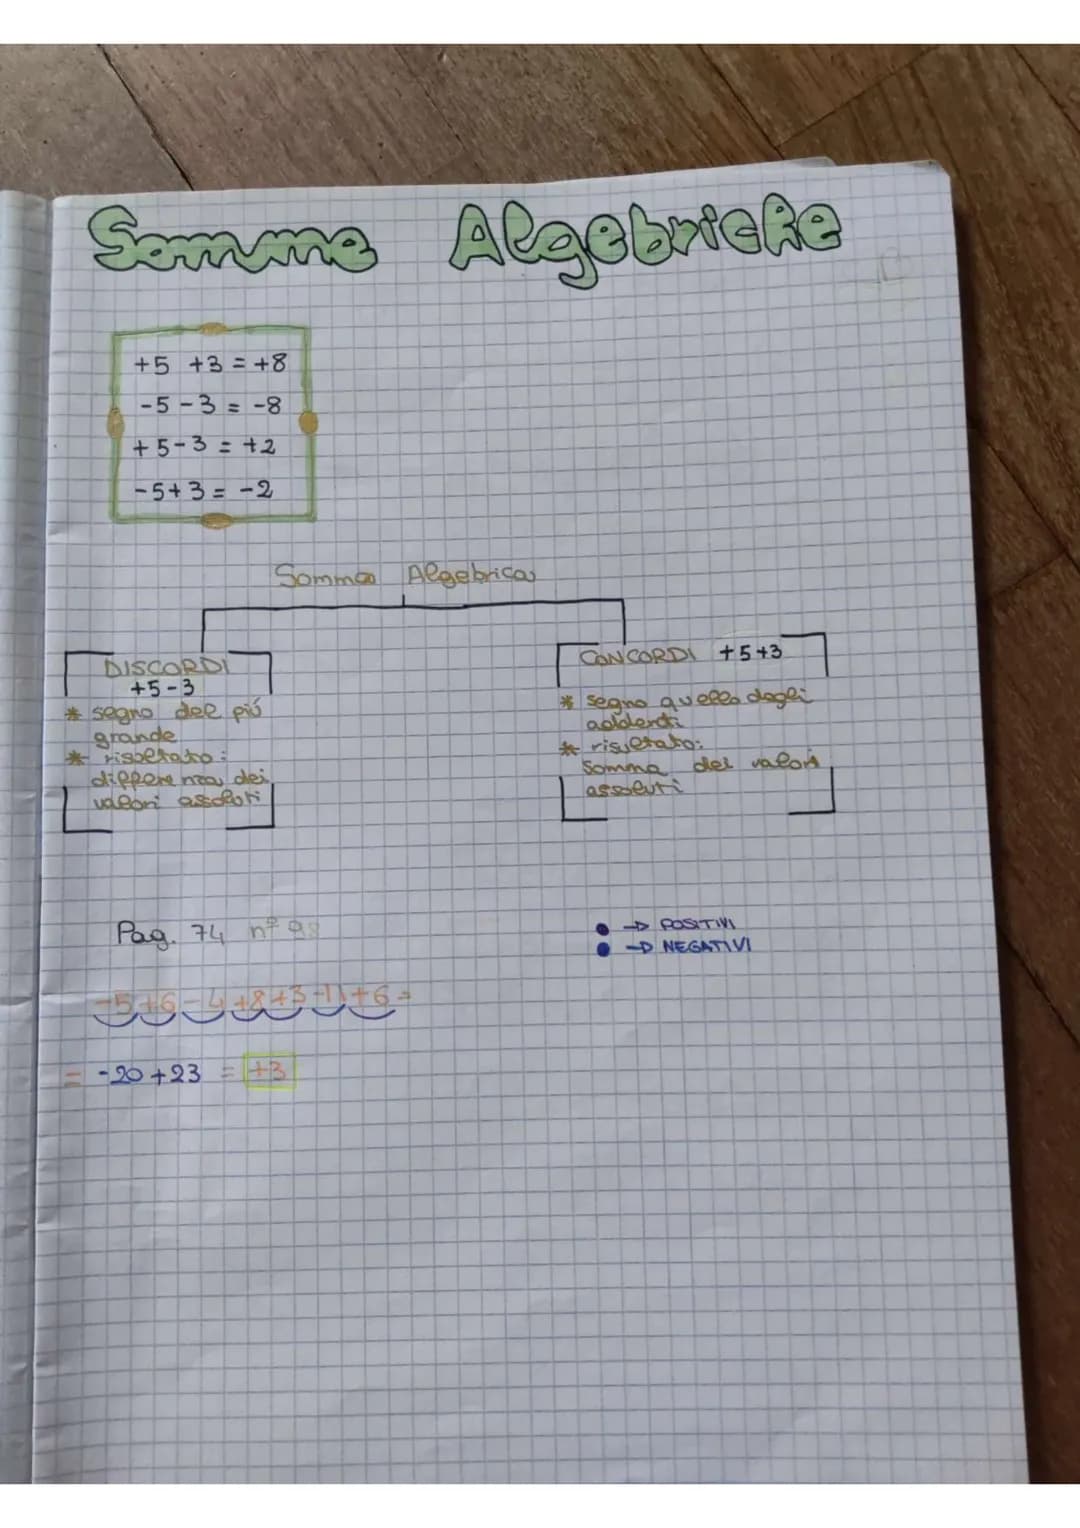 Somme Algebriche
+5 +3 = +8
-5 -3 = -8
+5-3 = +2
-5+3 = -2
Somma Algebrica
DISCORDI
+5-3
* segno del più
grande
* risultato:
differenza dei
valori assoluti
CONCORDI +5+3
* segno quello degli
addendi
* risultato:
somma dei valori
assoluti
Pag. 74 n° 98
• → POSITIVI
• → NEGATIVI
-5+6-4+8+3-11+6=
= -20+23 = +3